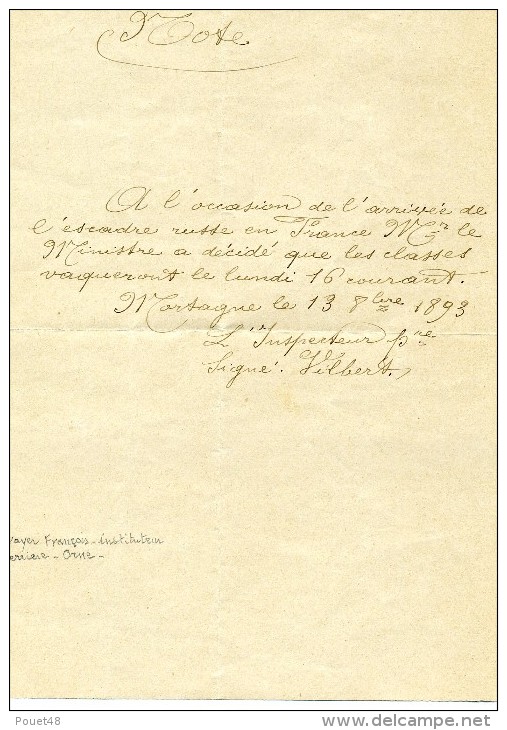 Note
A l'occasion de l'arrivée de
l'escadre russe en France Mr le
Ministre a décidé que les classes
vaqueront le lundi 16 courant.
Mortagne le 13 8bre 1893
L'Inspecteur pre
Signé. Vilbert.
François - instituteur
- Orne -
Pouet48
www.delcampe.net